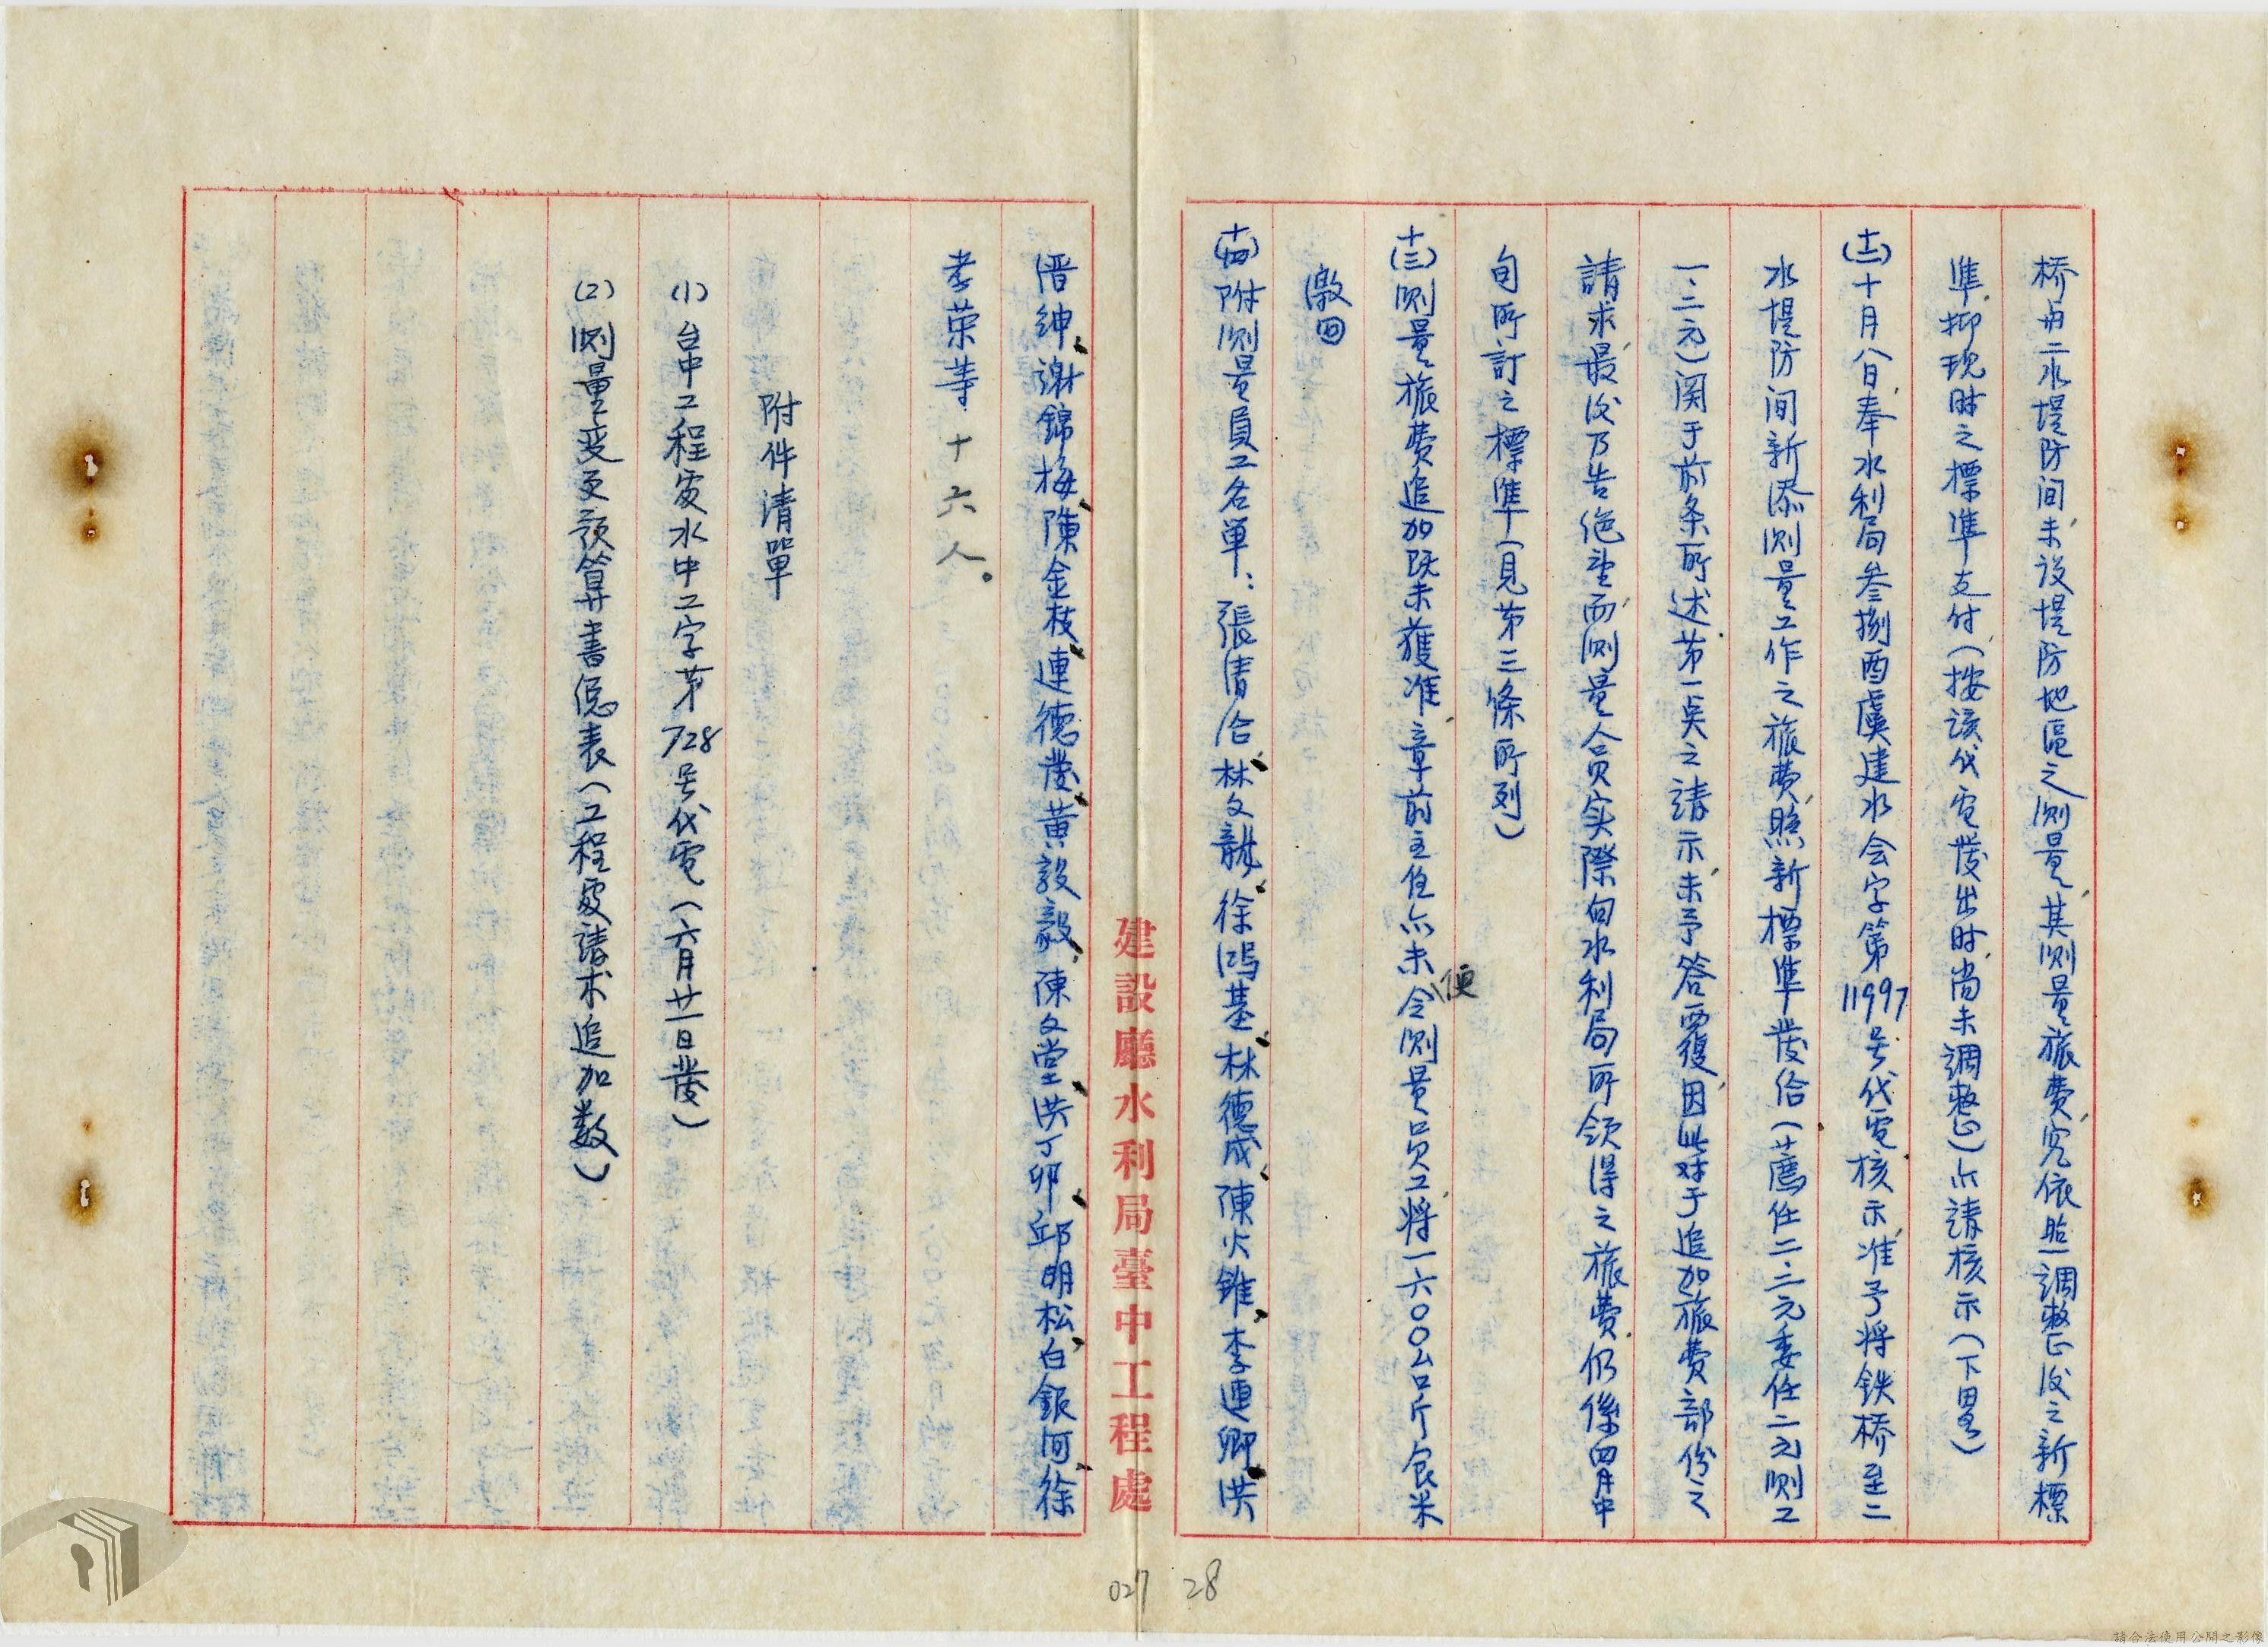 桥舟二水堤防间未设堤防地區之测量其测量旅费究依照調整后之新標
準抑现时之標準支付(按该代電發出时尚未調整)亦请核示(下畧)
(十二)十月八日奉水利局叁捌酉虞建水会字第11997号代電核示准予将铁桥至二
水堤防间新添测量工作之旅费照新標準發给(薦任二.三元委任二元测工
一.二元)関于前条所述第一点之請示未予答覆因此对于追加旅费部份之
請求最后乃告绝望而测量人员实際向水利局所领得之旅费仍係四月中
旬所訂之標準(見第三條所列)
(十三)测量旅费追加既未獲准章前主任亦未便令测量员工将一六〇〇公斤食米
缴回
(十四)附测量員工名单:張清治林文龍徐鴻基林德成陳火錐李連卿洪
建設廳水利局臺中工程處
晋紳謝錦梅陳金枝連德發黄毅毅陳文堂洪丁卯邱明松白銀河徐
孝荣等十六人。
附件清單
(1)台中工程處水中工字第728号代電(六月廿一日發)
(2)测量变更预算書總表(工程處請求追加数)
027 28
請合法使用公開之影像